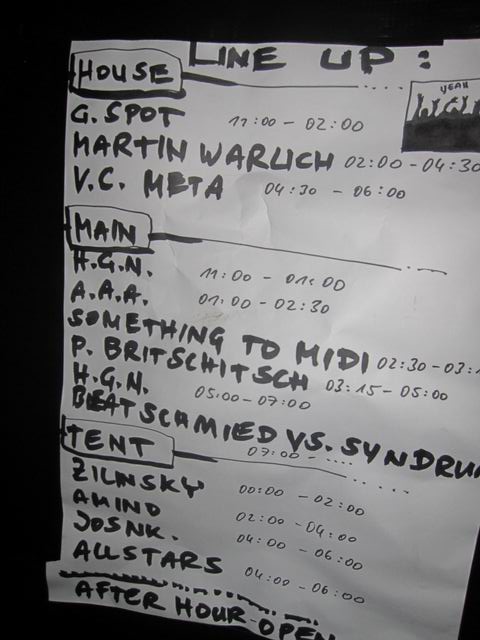 LINE UP:
HOUSE
YEAH
G.SPOT 11:00 - 02:00
MARTIN WARLICH 02:00 - 04:30
V.C. META 04:30 - 06:00
MAIN
H.G.N. 11:00 - 01:00
A.A.A. 01:00 - 02:30
SOMETHING TO MIDI 02:30 - 03:1
P. BRITSCHITSCH 03:15 - 05:00
H.G.N. 05:00 - 07:00
BEATSCHMIED VS. SYNDRU
07:00 - ....
TENT
ZILINSKY 00:00 - 02:00
AMINO 02:00 - 04:00
JOSNK. 04:00 - 06:00
ALLSTARS 04:00 - 06:00
AFTER HOUR OPEN